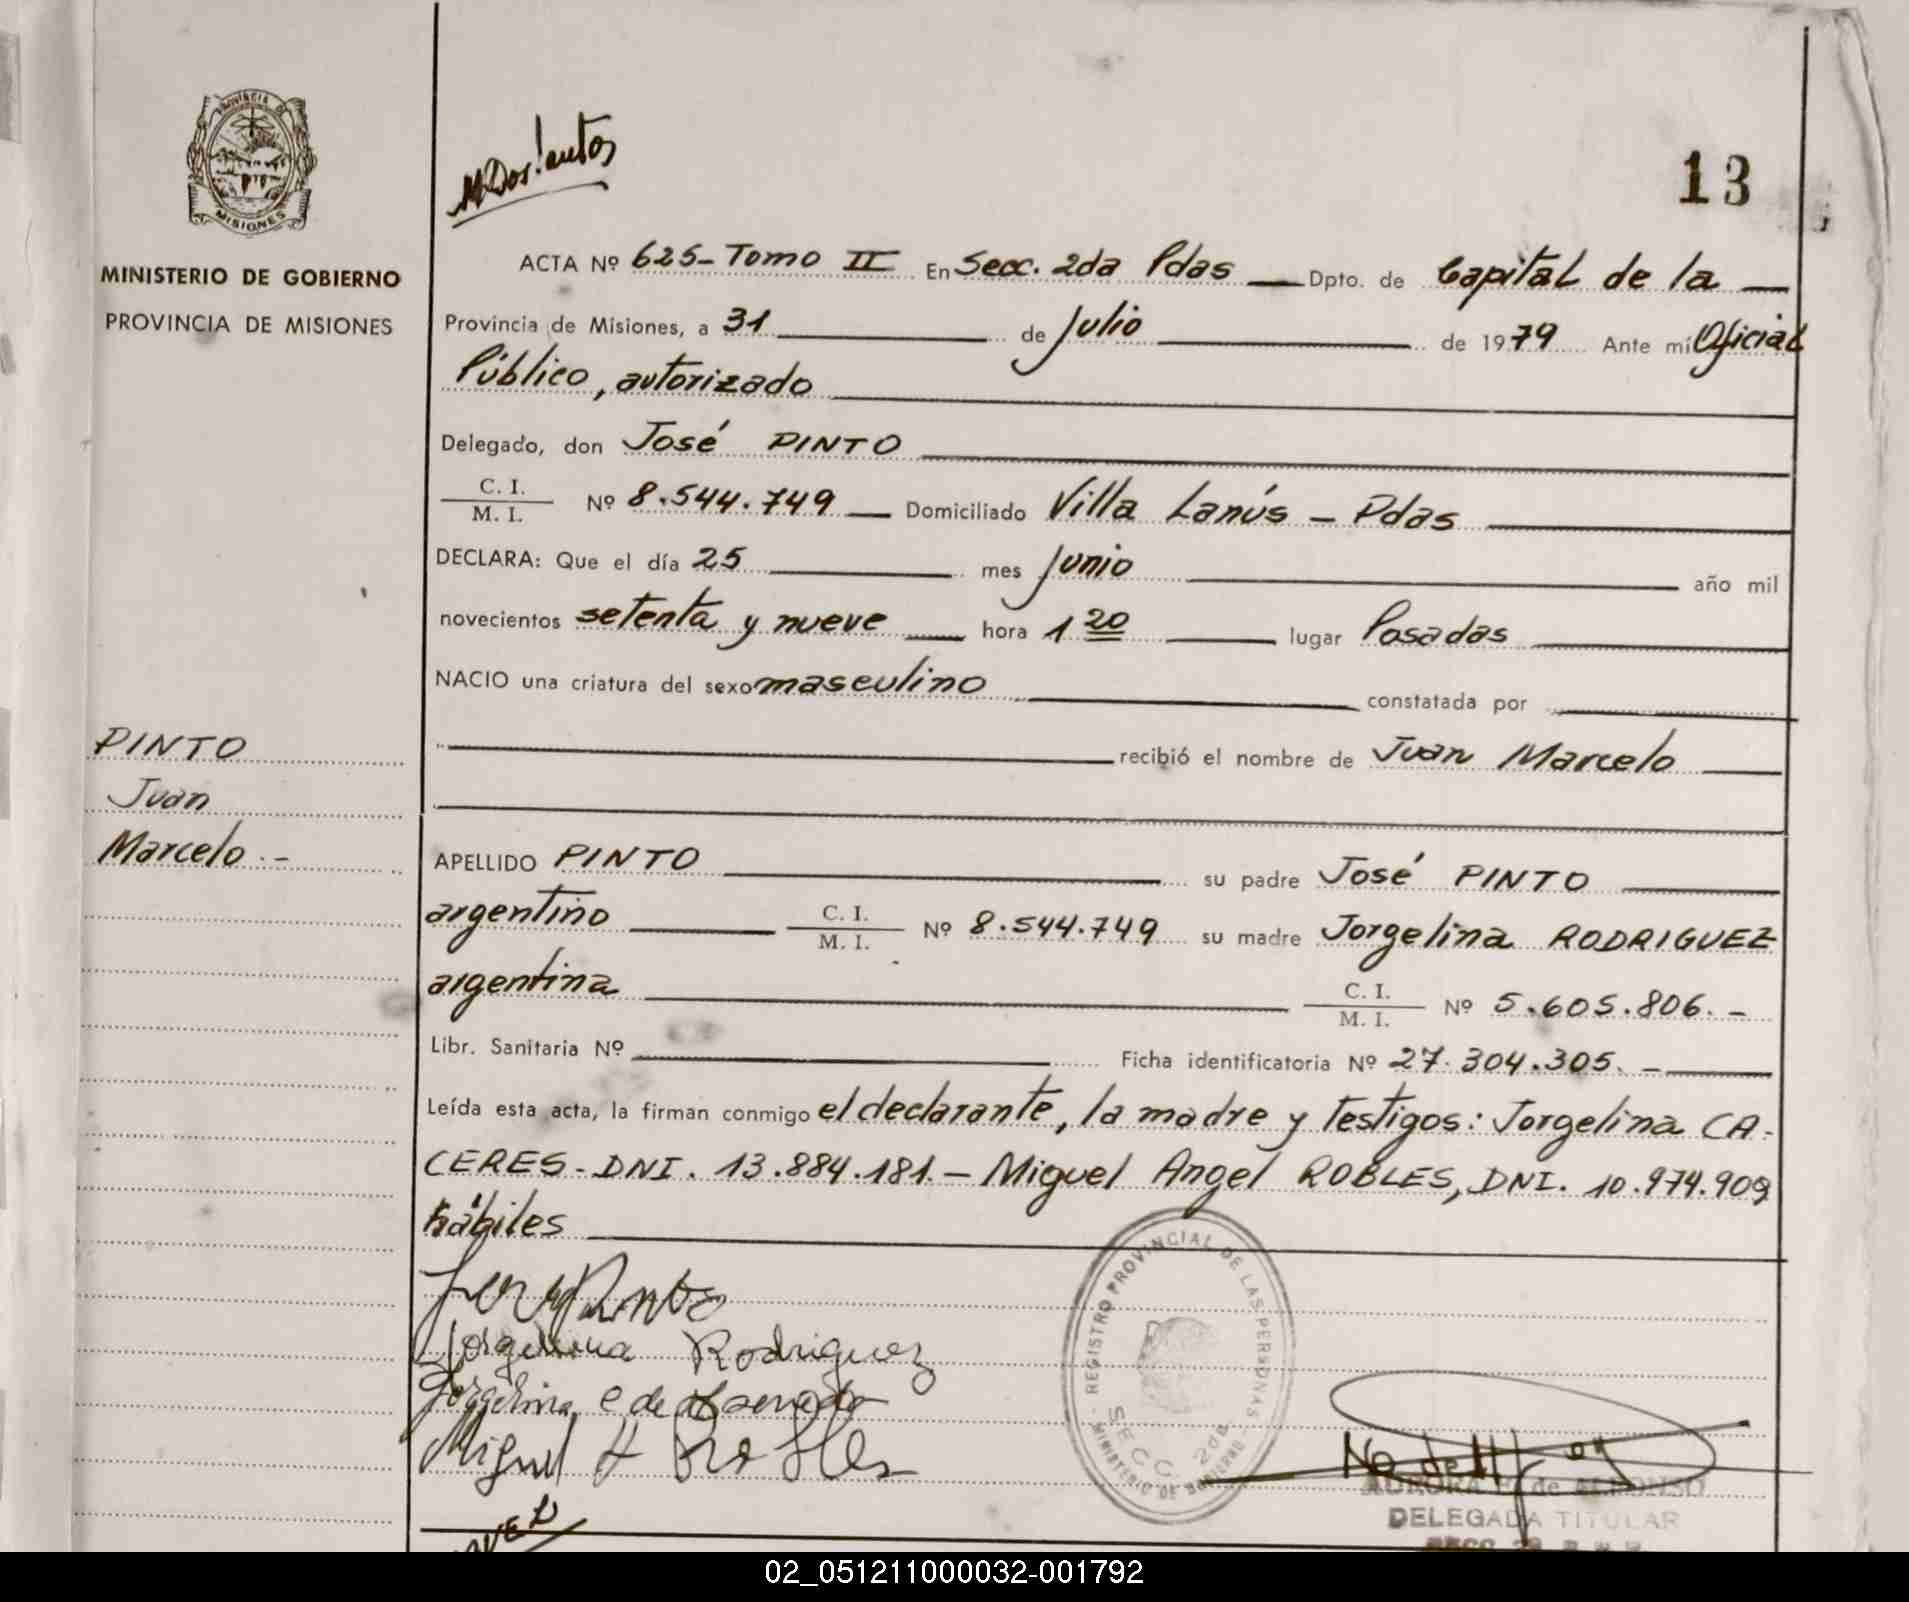 PROVINCIA DE
MISIONES
MINISTERIO DE GOBIERNO
PROVINCIA DE MISIONES
PINTO
Juan
Marcelo.-
13
ACTA Nº 625-Tomo II En Secc. 2da Pdas Dpto. de Capital de la
Provincia de Misiones, a 31 de Julio de 1979 Ante mí Oficial
Público, autorizado
Delegado, don José PINTO
C. I.
M. I. Nº 8.544.749 Domiciliado Villa Lanús - Pdas
DECLARA: Que el día 25 mes Junio año mil
novecientos setenta y nueve hora 1 20 lugar Posadas
NACIO una criatura del sexo masculino constatada por
recibió el nombre de Juan Marcelo
APELLIDO PINTO su padre José PINTO
argentino C. I. M. I. Nº 8.544.749 su madre Jorgelina RODRIGUEZ
argentina C. I. M. I. Nº 5.605.806.-
Libr. Sanitaria Nº Ficha identificatoria Nº 27.304.305.-
Leída esta acta, la firman conmigo el declarante, la madre y Testigos: Jorgelina CA-
CERES- DNI. 13.884.181.- Miguel Angel ROBLES, DNI. 10.974.909
hábiles
Jorgelina Rodriguez
Jorgelina C de
Miguel A Robles
REGISTRO PROVINCIAL DE LAS PERSONAS
MINISTERIO DE GOBIERNO
SECC. 2da
AURORA de ALFONSO
DELEGADA TITULAR
02_051211000032-001792